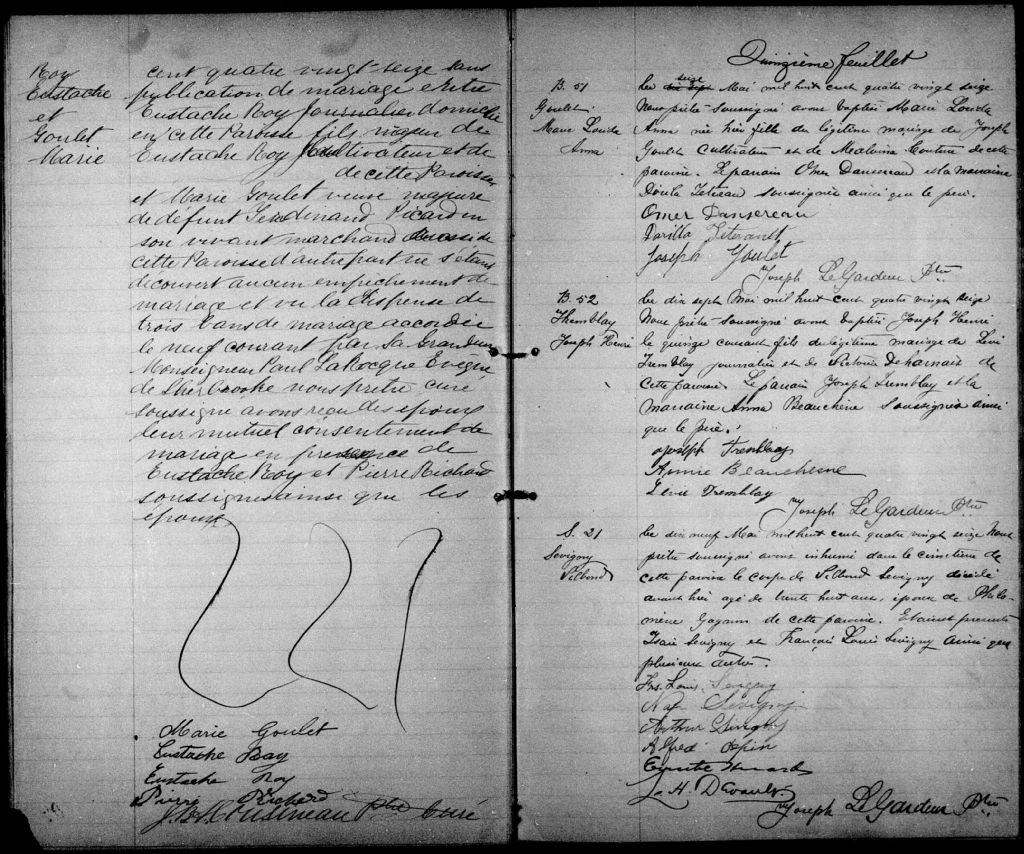 Roy
Eustache
et
Goulet
Marie
cent quatre vingt seize sans
publication de mariage entre
Eustache Roy Journalier domicilié
en cette Paroisse fils majeur de
Eustache Roy cultivateur et de
de cette Paroisse
et Marie Goulet veuve majeure
de defunt Ferdinand Picard en
son vivant marchand aussi de
cette Paroisse d'autre part ne s'étant
découvert aucun empêchement de
mariage et vu la dispense de
trois bans de mariage accordée
le neuf courant par Sa Grandeur
Monseigneur Paul LaRocque Evêque
de Sherbrooke nous prêtre curé
soussigné avons reçu des époux
leur mutuel consentement de
mariage en presence de
Eustache Roy et Pierre Richard
soussignés ainsi que les
époux
Marie Goulet
Eustache Roy
Eustache Roy
Pierre Richard
Ptre Curé
Quinzième feuillet
B. 51
Goulet
Marie Lourda
Anna
Le seize Mai mil huit cent quatre vingt seize
Nous prêtre soussigné avons baptisé Marie Lourda
Anna née hier fille du légitime mariage de Joseph
Goulet cultivateur et de Malvina Couture de cette
paroisse. Le parrain Omer Dansereau et la marraine
soussignés ainsi que le père.
Omer Dansereau
Joseph Goulet
Joseph LeGardeur Ptre
B. 52
Themblay
Joseph Henri
Le dix sept Mai mil huit cent quatre vingt seize
Nous prêtre soussigné avons baptisé Joseph Henri
le quinze courant fils du légitime mariage de Lévi
Tremblay journalier et de Victoria Deharnais de
cette paroisse. Le parrain Joseph Tremblay et la
marraine Anna Beauchène soussignés ainsi
que le père.
Joseph Tremblay
Annie Beauchesne
Lévie Tremblay
Joseph LeGardeur Ptre
S. 21
Sevigny
Le dix neuf Mai mil huit cent quatre vingt seize Nous
prêtre soussigné avons inhumé dans le cimetière de
cette paroisse le corps de Sevigny décédé
avant hier agé de trente huit ans, époux de Philo-
mène Gagnon de cette paroisse. Etaient présents
Isaïe Sevigny et François Louis Sevigny ainsi que
plusieurs autres.
Frs. Louis Sevigny
Nap Sevigny
Arthur Sevigny
Alfred Pepin
Joseph LeGardeur Ptre